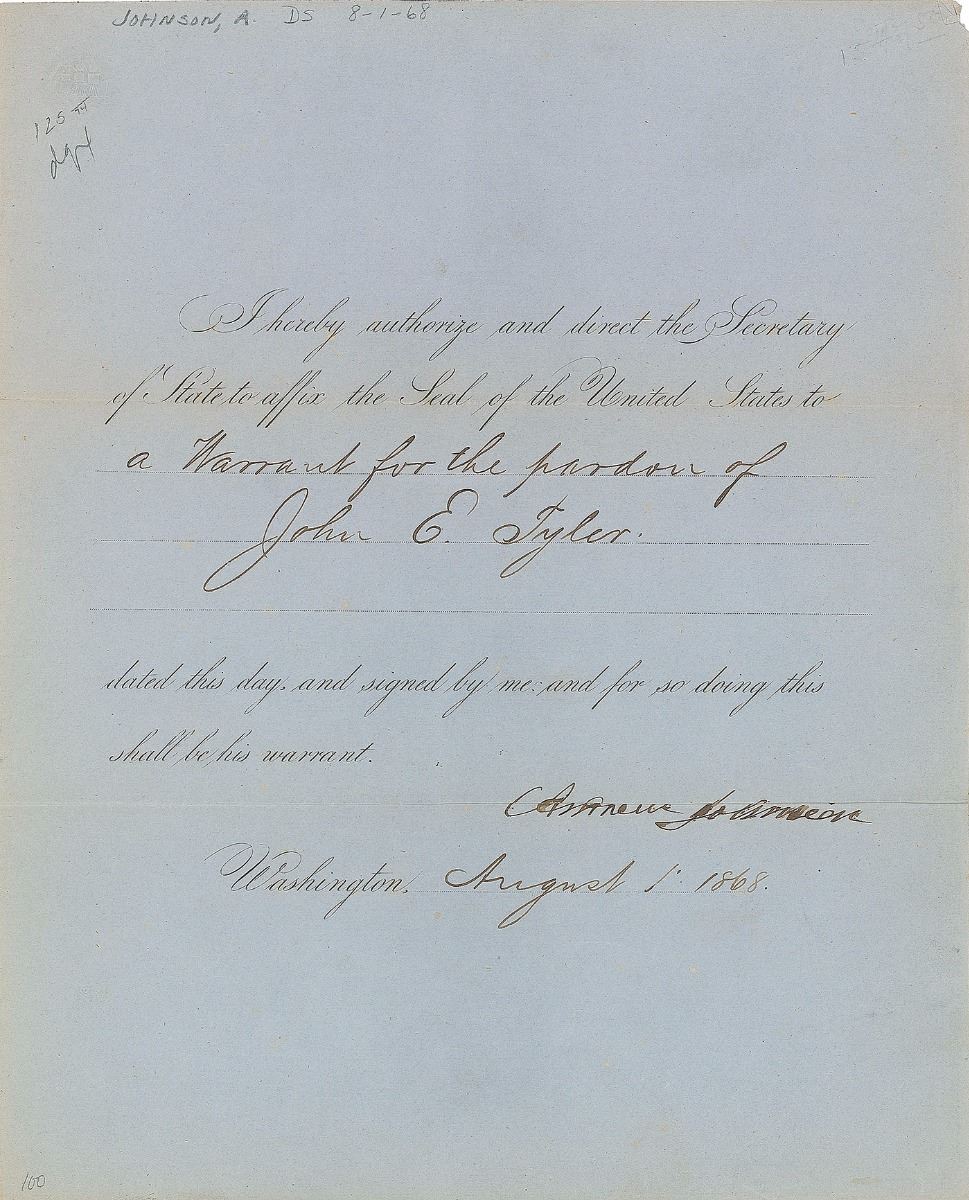 JOHNSON, A. DS 8-1-68
125
I hereby authorize and direct the Secretary
of State to affix the Seal of the United States to
a Warrant for the pardon of
John E. Tyler.
dated this day, and signed by me: and for so doing this
shall be his warrant.
Andrew Johnson
Washington, August 1. 1868.
100